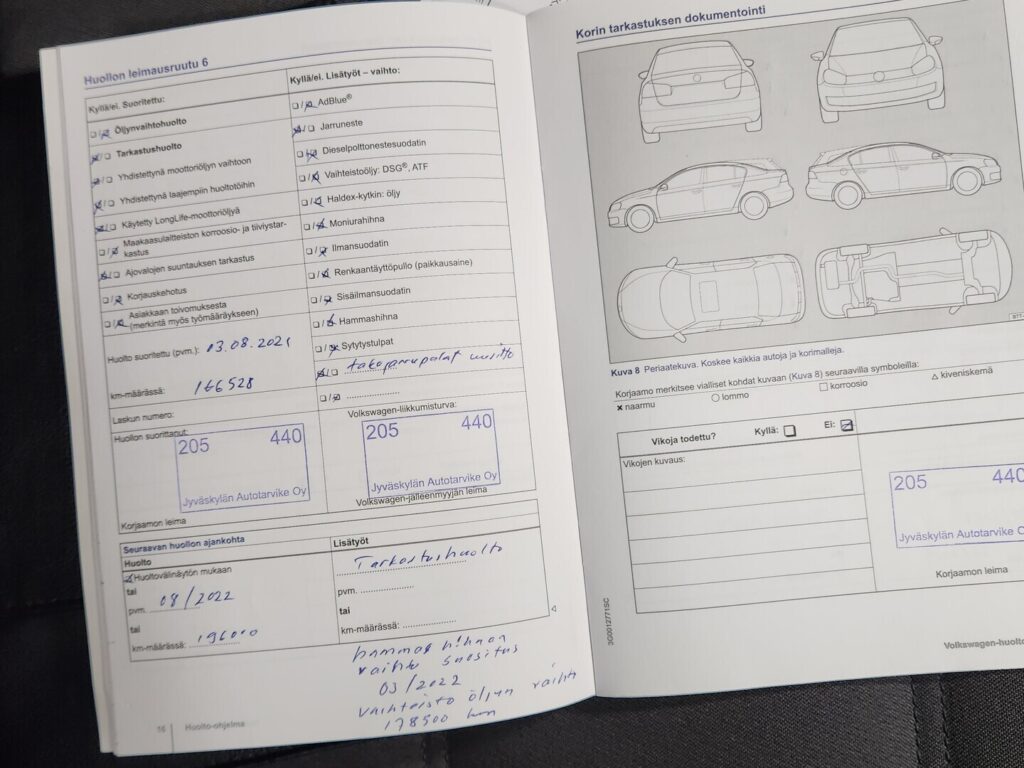 Huollon leimausruutu 6
Kyllä/ei. Suoritettu:
Öljynvaihtohuolto
Tarkastushuolto
Yhdistettynä moottoriöljyn vaihtoon
Yhdistettynä laajempiin huoltotöihin
Käytetty LongLife-moottoriöljyä
Maakaasulaitteiston korroosio- ja tiiviystar-
kastus
Ajovalojen suuntauksen tarkastus
Korjauskehotus
Asiakkaan toivomuksesta
(merkintä myös työmääräykseen)
Huolto suoritettu (pvm.): 03.08.2021
km-määrässä: 166528
Laskun numero:
Huollon suorittanut:
205 440
Jyväskylän Autotarvike Oy
Korjaamon leima
Kyllä/ei. Lisätyöt – vaihto:
AdBlue®
Jarruneste
Dieselpolttonestesuodatin
Vaihteistoöljy: DSG®, ATF
Haldex-kytkin: öljy
Moniurahihna
Ilmansuodatin
Renkaantäyttöpullo (paikkausaine)
Sisäilmansuodatin
Hammashihna
Sytytystulpat
takajarrupalat uusittu
Volkswagen-liikkumisturva:
205 440
Jyväskylän Autotarvike Oy
Volkswagen-jälleenmyyjän leima
Seuraavan huollon ajankohta
Huolto
Huoltovälinäytön mukaan
tai
pvm. 08/2022
tai
km-määrässä: 196000
Lisätyöt
Tarkastushuolto
pvm.
tai
km-määrässä:
hammas hihnan
vaihto suositus
03/2022
vaihteisto öljyn vaihto
178500 km
16 Huolto-ohjelma
Korin tarkastuksen dokumentointi
Kuva 8 Periaatekuva. Koskee kaikkia autoja ja korimalleja.
Korjaamo merkitsee vialliset kohdat kuvaan (Kuva 8) seuraavilla symboleilla:
naarmu lommo korroosio kiveniskemä
Vikoja todettu? Kyllä: Ei:
Vikojen kuvaus:
205 440
Jyväskylän Autotarvike Oy
Korjaamon leima
3G0012771SC
Volkswagen-huolto